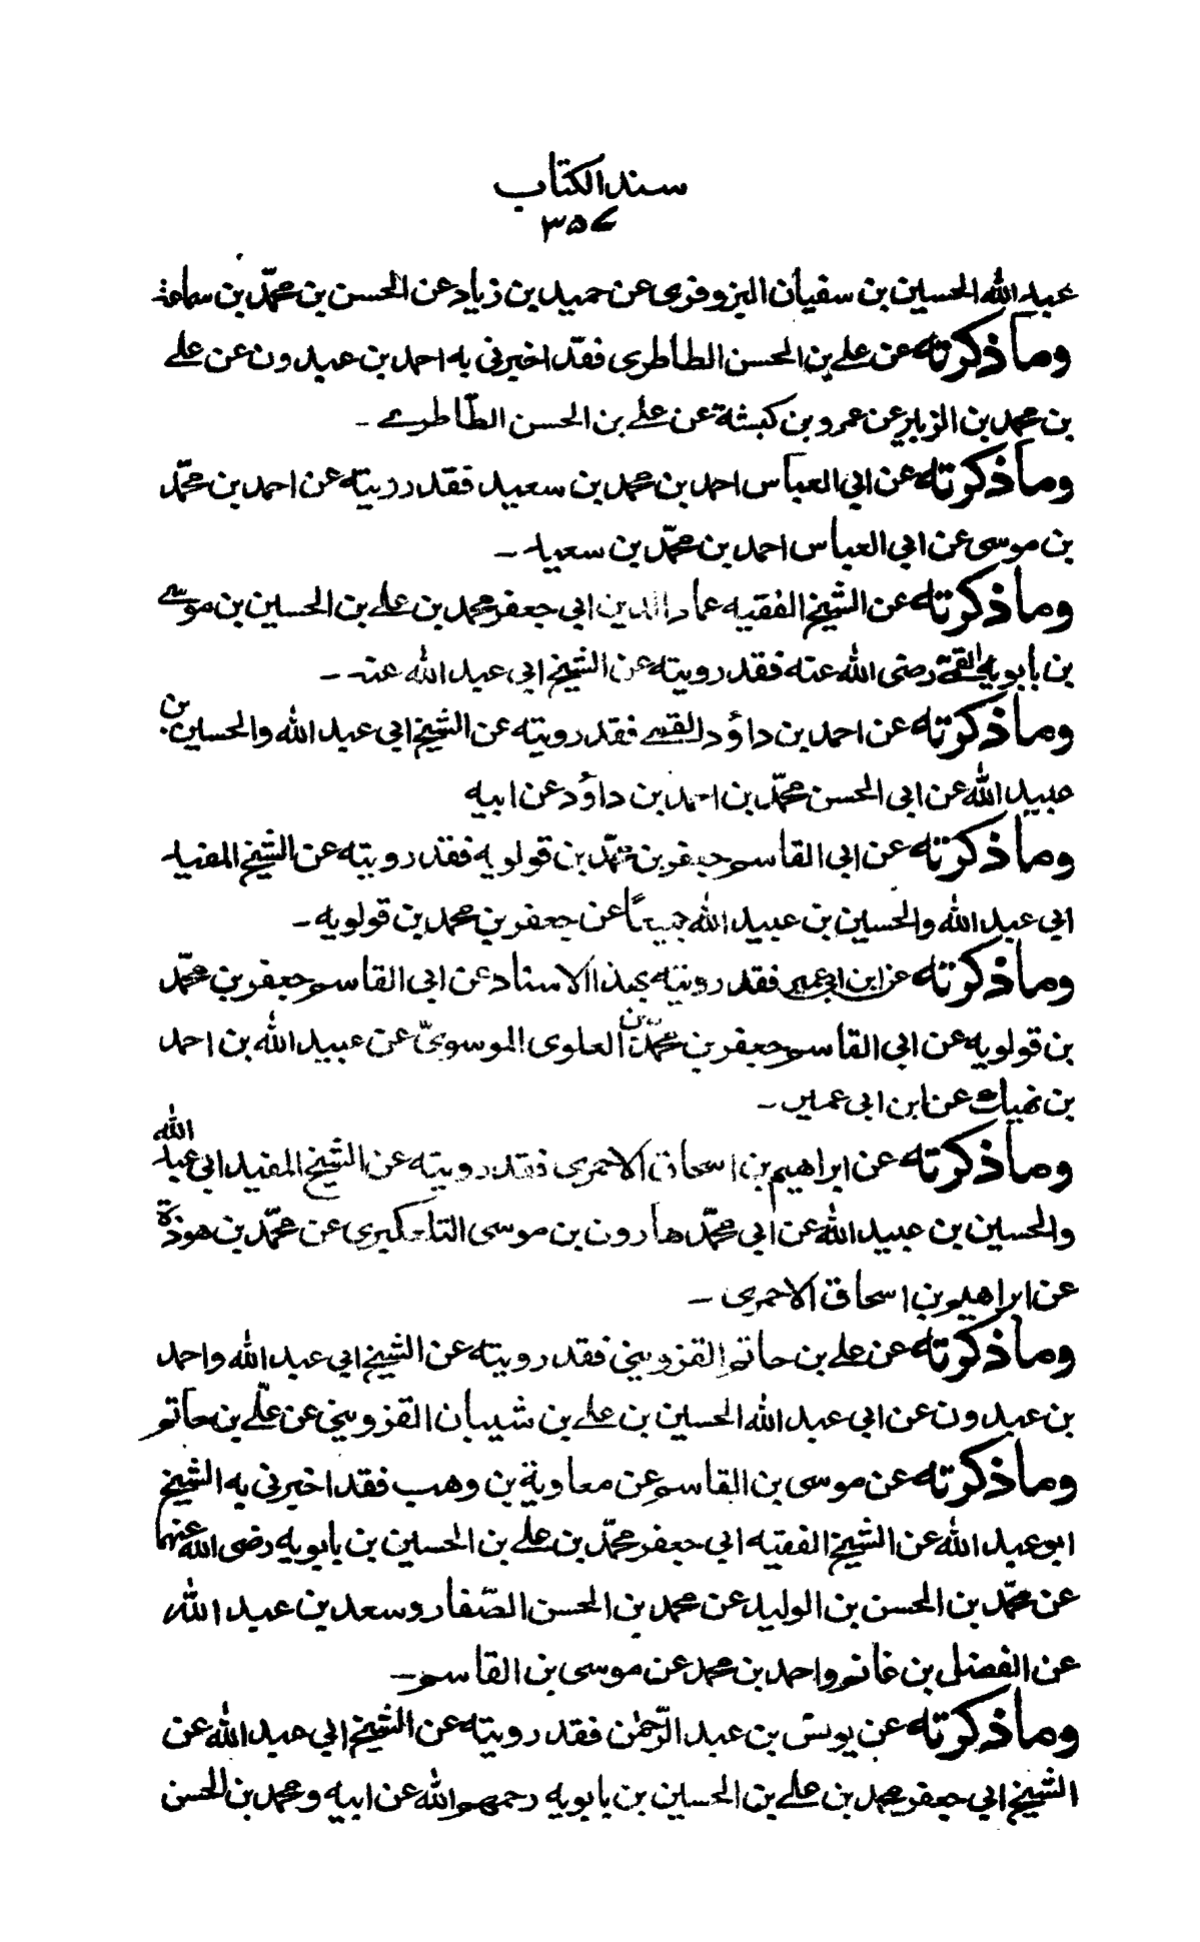 سند الكتاب
۳۵۷
عبد الله الحسين بن سفيان البزوفرى عن حميد بن زياد عن الحسن بن محمّد بن سماعة
وما ذكرته عن علے بن الحسن الطاطرى فقد اخبرنى به احمد بن عبدون عن علے
بن محمد بن الزبير عن عمرو بن كبشة عن علے بن الحسن الطّاطرے ـ
وما ذكرته عن ابي العباس احمد بن محمد بن سعيد فقد رويته عن احمد بن محمّد
بن موسى عن ابي العباس احمد بن محمّد بن سعيد ـ
وما ذكرته عن الشيخ الفقيه عماد الدين ابي جعفر محمد بن علے بن الحسين بن موسے
بن بابويه القمّے رضى الله عنه فقد رويته عن الشيخ ابي عبد الله عنه ـ
وما ذكرته عن احمد بن داؤد القمے فقد رويته عن الشيخ ابي عبد الله والحسين بن
عبيد الله عن ابى الحسن محمّد بن احمد بن داؤد عن ابيه
وما ذكرته عن ابى القاسم جعفر بن محمّد بن قولويه فقد رويته عن الشيخ المفيد
ابي عبد الله والحسين بن عبيد الله جميعًا عن جعفر بن محمد بن قولويه ـ
وما ذكرته عن ابن ابي عمير فقد رويته بهذا الاسناد عن ابى القاسم جعفر بن محمّد
بن قولويه عن ابى القاسم جعفر بن محمّد بن العلوى الموسوىّ عن عبيد الله بن احمد
بن نهيك عن ابن ابى عمير ـ
وما ذكرته عن ابراهيم بن اسحاق الاحمرى فقد رويته عن الشيخ المفيد ابى عبد الله
والحسين بن عبيد الله عن ابي محمّد هارون بن موسى التلعكبرى عن محمّد بن هوذة
عن ابراهيم بن اسحاق الاحمرى ـ
وما ذكرته عن علے بن حاتم القزويني فقد رويته عن الشيخ ابي عبد الله واحمد
بن عبدون عن ابى عبد الله الحسين بن علے بن شيبان القزويني عن علّے بن حاتم
وما ذكرته عن موسى بن القاسم عن معاوية بن وهب فقد اخبرنى به الشيخ
ابو عبد الله عن الشيخ الفقيه ابي جعفر محمّد بن علے بن الحسين بن بابويه رضى الله عنهما
عن محمّد بن الحسن بن الوليد عن محمد بن الحسن الصّفار وسعد بن عبد الله
عن الفضل بن غانم واحمد بن محمد عن موسى بن القاسم ـ
وما ذكرته عن يونس بن عبد الرّحمٰن فقد رويته عن الشيخ ابي عبد الله عن
الشيخ ابي جعفر محمد بن علے بن الحسين بن بابويه رحمهم الله عن ابيه ومحمد بن الحسن